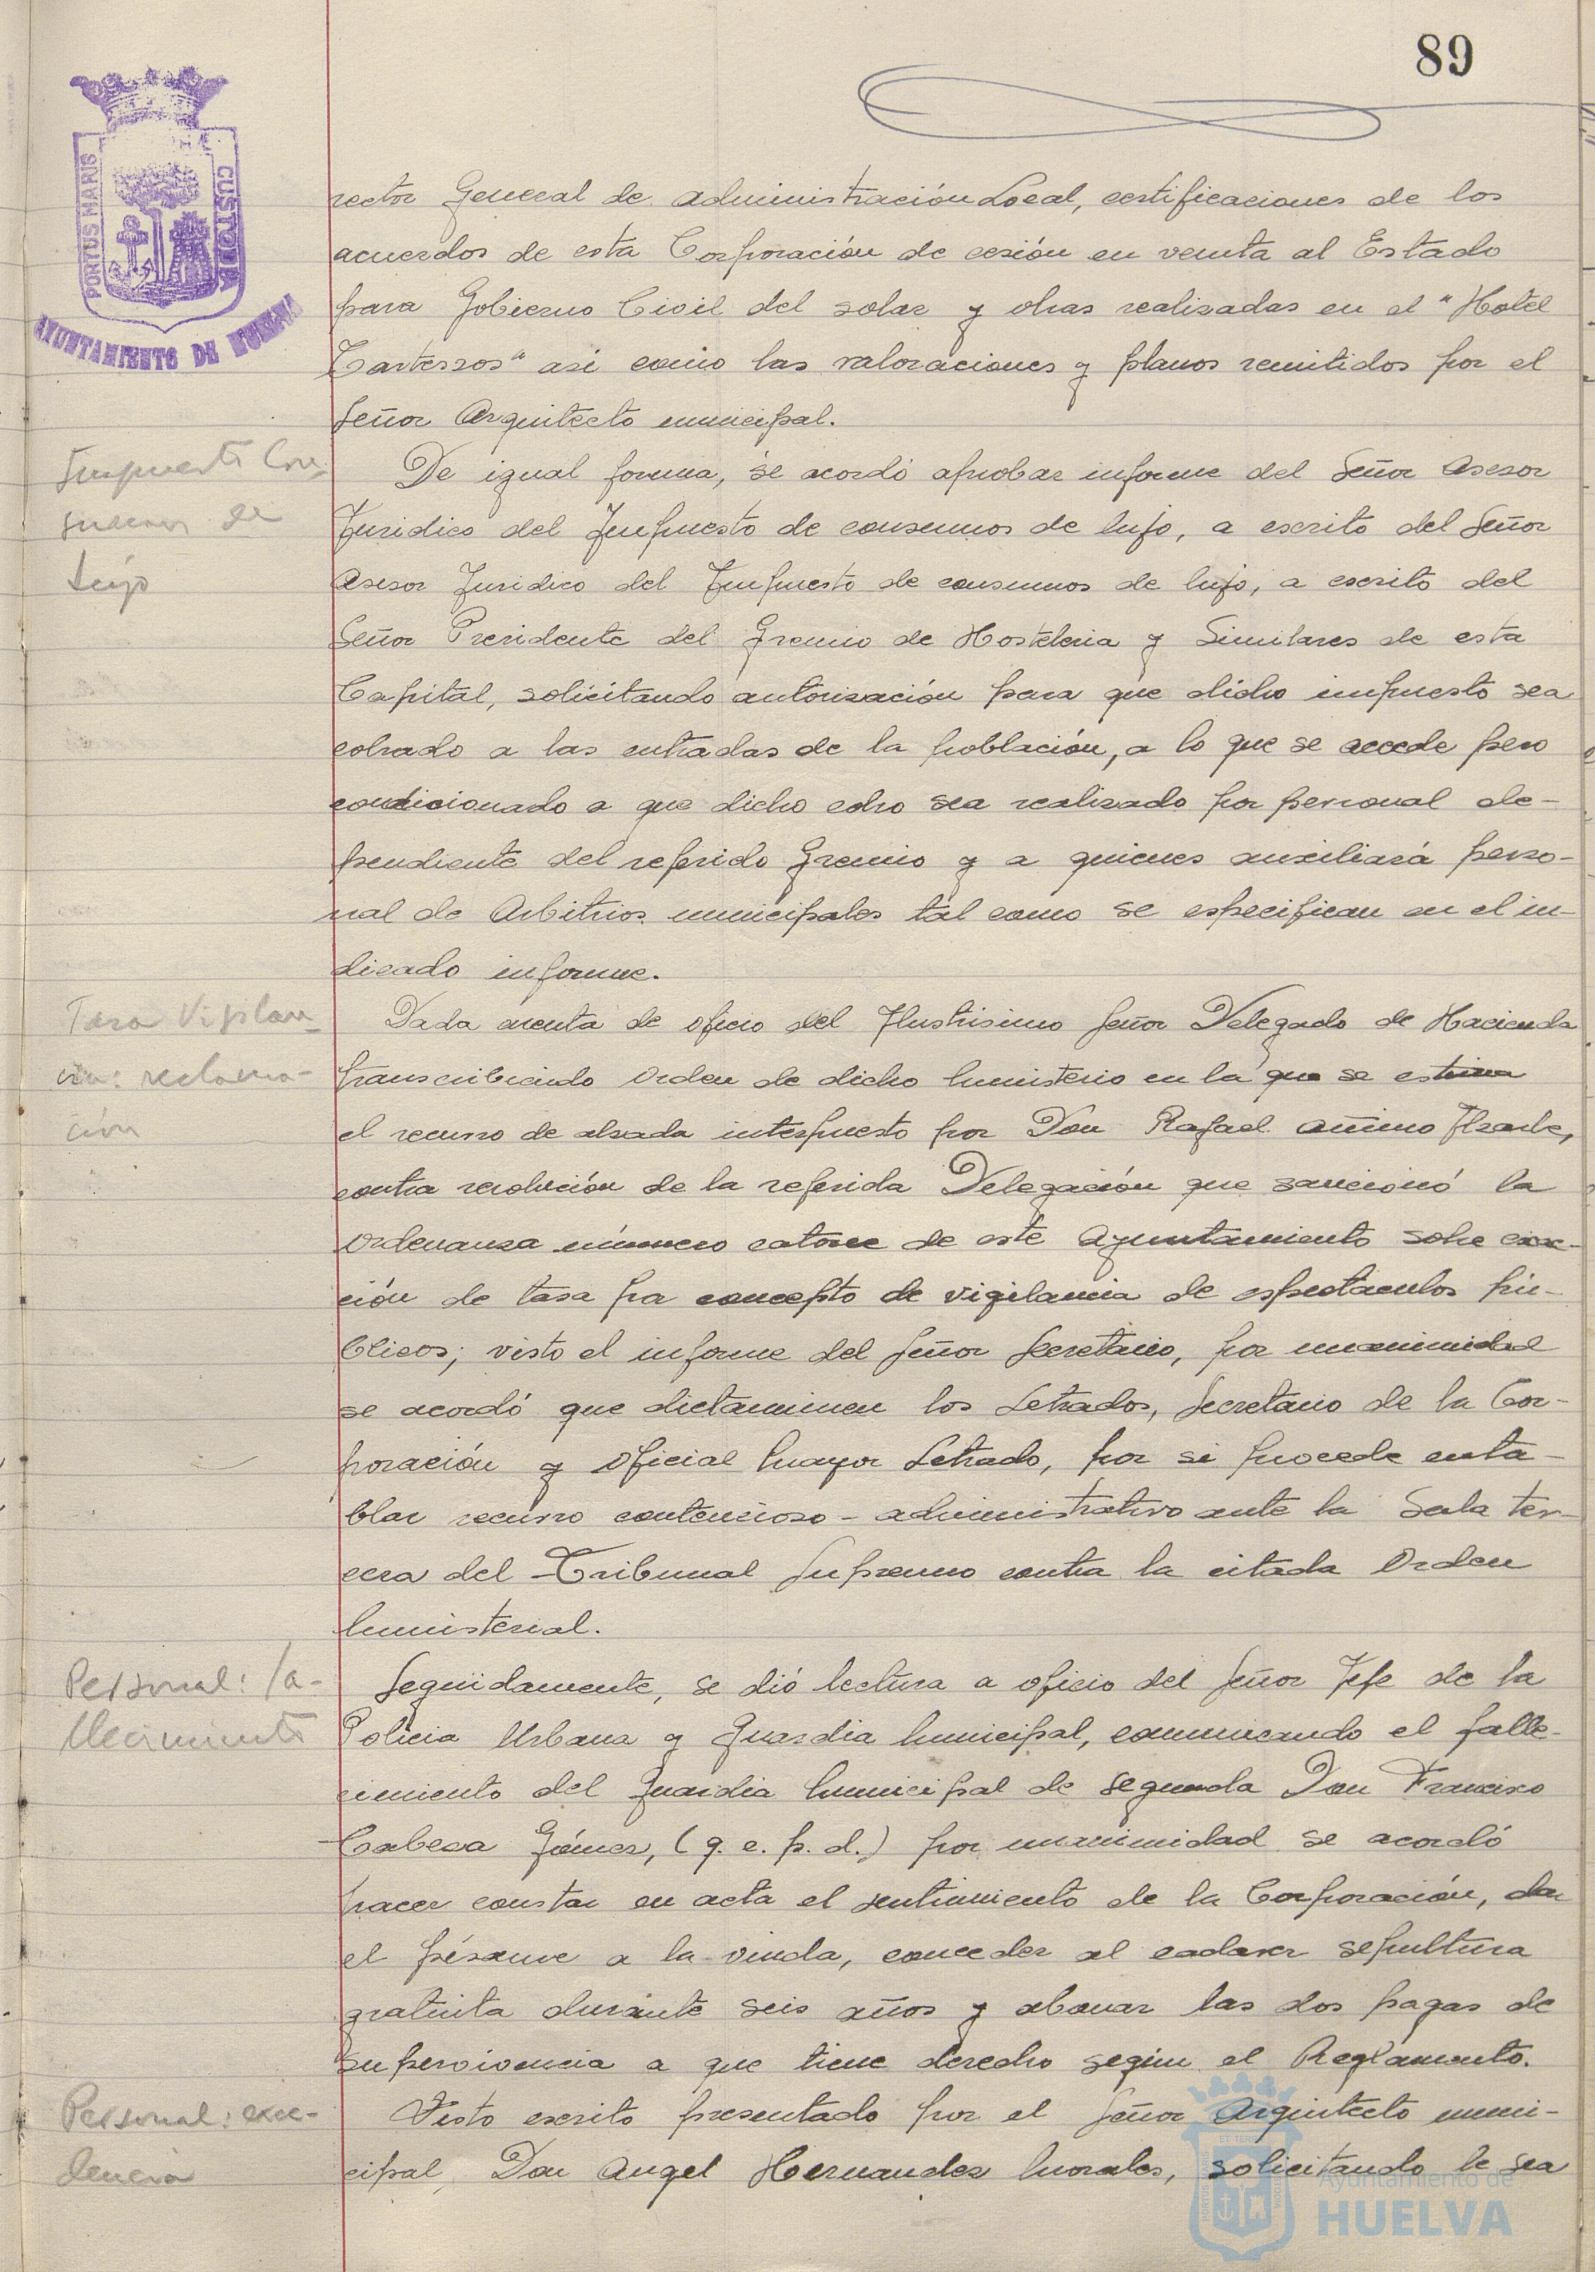 89
PORTUS MARIS
CUSTODIA
AYUNTAMIENTO DE HUELVA
rector General de Administración Local, certificaciones de los
acuerdos de esta Corporación de cesión en venta al Estado
para Gobierno Civil del solar y obras realizadas en el "Hotel
Tartessos" asi como las valoraciones y planos remitidos por el
Señor Arquitecto municipal.
Impuesto Con-
sumos de
Lujo
De igual forma, se acordó aprobar informe del Señor Asesor
Juridico del Impuesto de consumos de lujo, a escrito del Señor
Asesor Juridico del Impuesto de consumos de lujo, a escrito del
Señor Presidente del Gremio de Hosteleria y Similares de esta
Capital, solicitando autorización para que dicho impuesto sea
cobrado a las entradas de la población, a lo que se accede pero
condicionado a que dicho cobro sea realizado por personal de-
pendiente del referido Gremio y a quienes auxiliará perso-
nal de Arbitrios municipales tal como se especifican en el in-
dicado informe.
Tasa Vigilan
cia: reclama-
ción
Dada cuenta de oficio del Ilustrisimo Señor Delegado de Hacienda
transcribiendo Orden de dicho Ministerio en la que se estima
el recurso de alzada interpuesto por Don Rafael
contra resolución de la referida Delegación que sancionó la
Ordenanza número catorce de este Ayuntamiento sobre exac-
ción de tasa por concepto de vigilancia de espectaculos pú-
blicos; visto el informe del Señor Secretario, por unanimidad
se acordó que dictaminen los Letrados, Secretario de la Cor-
poración y Oficial Mayor Letrado, por si procede enta-
blar recurso contencioso-administrativo ante la Sala ter-
cera del Tribunal Supremo contra la citada Orden
Ministerial.
Personal: fa-
llecimiento
Seguidamente, se dió lectura a oficio del Señor Jefe de la
Policia Urbana y Guardia Municipal, comunicando el falle-
cimiento del Guardia Municipal de segunda Don Francisco
Cabeza Gómez, (q. e. p. d.) por unanimidad se acordó
hacer constar en acta el sentimiento de la Corporación, dar
el pésame a la viuda, conceder al cadaver sepultura
gratuita durante seis años y abonar las dos pagas de
supervivencia a que tiene derecho según el Reglamento.
Personal: exce-
dencia
Visto escrito presentado por el Señor Arquitecto muni-
cipal, Don Angel Hernandez Morales, solicitando le sea
Ayuntamiento de
HUELVA